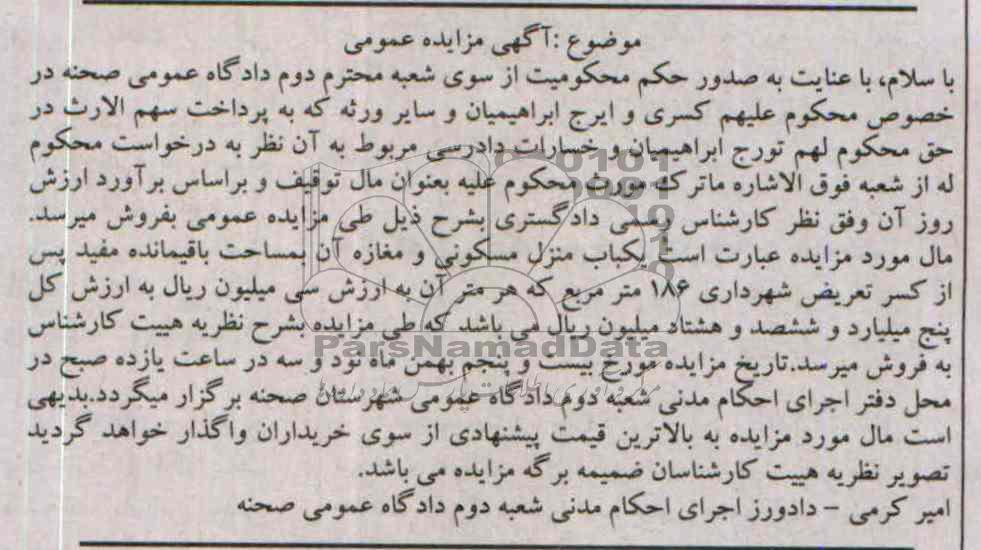 موضوع :آگهی مزایده عمومی
با سلام، با عنایت به صدور حکم محکومیت از سوی شعبه محترم دوم دادگاه عمومی صحنه در
خصوص محکوم علیهم کسری و ایرج ابراهیمیان و سایر ورثه که به پرداخت سهم الارث در
حق محکوم لهم تورج ابراهیمیان و خسارات دادرسی مربوط به آن نظر به درخواست محکوم
له از شعبه فوق الاشاره ماترک مورث محکوم علیه بعنوان مال توقیف و براساس برآورد ارزش
روز آن وفق نظر کارشناس رسمی دادگستری بشرح ذیل طی مزایده عمومی بفروش میرسد.
مال مورد مزایده عبارت است یکباب منزل مسکونی و مغازه آن بمساحت باقیمانده مفید پس
از کسر تعریض شهرداری ۱۸۶ متر مربع که هر متر آن به ارزش سی میلیون ریال به ارزش کل
پنج میلیارد و ششصد و هشتاد میلیون ریال می باشد که طی مزایده بشرح نظریه هییت کارشناس
ParsNamadData
به فروش میرسد.تاریخ مزایده مورخ بیست و پنجم بهمن ماه نود و سه در ساعت یازده صبح در
محل دفتر اجرای احکام مدنی شعبه دوم دادگاه عمومی شهرستان صحنه برگزار میگردد.بدیهی
است مال مورد مزایده به بالاترین قیمت پیشنهادی از سوی خریداران واگذار خواهد گردید
تصویر نظریه هییت کارشناسان ضمیمه برگه مزایده می باشد.
امیر کرمی - دادورز اجرای احکام مدنی شعبه دوم دادگاه عمومی صحنه